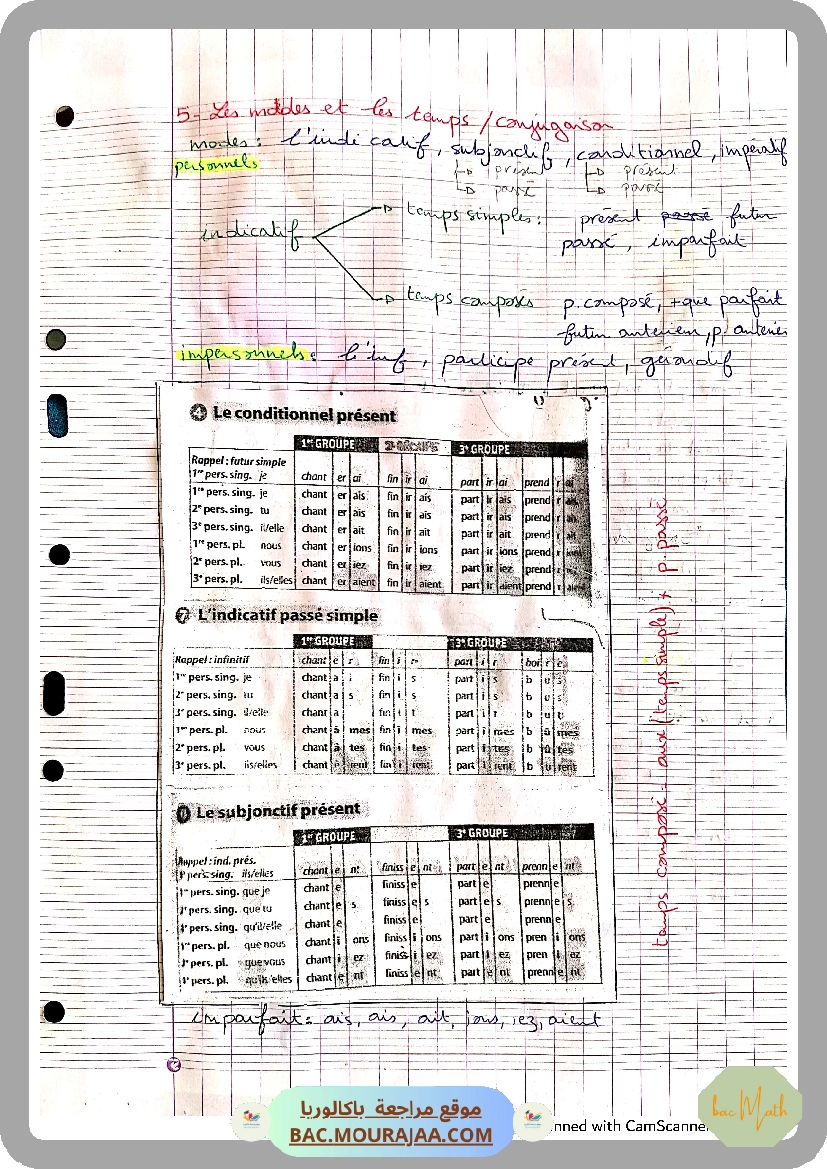 5- Les modes et les temps / conjugaison
modes : l'indicatif, subjonctif, conditionnel, impératif
personnels
présent présent
passé passé
indicatif
temps simples : présent passé futur
passé, imparfait
temps composés p. composé, + que parfait
futur anterieur, p. anterieu
impersonnels : l'inf, participe présent, gérondif
4 Le conditionnel présent
1er GROUPE 2e GROUPE 3e GROUPE
Rappel : futur simple
1re pers. sing. je chant er ai fin ir ai part ir ai prend r ai
1re pers. sing. je chant er ais fin ir ais part ir ais prend r ais
2e pers. sing. tu chant er ais fin ir ais part ir ais prend r ais
3e pers. sing. il/elle chant er ait fin ir ait part ir ait prend r
1re pers. pl. nous chant er ions fin ir ions part ir ions prend r
2e pers. pl. vous chant er iez fin ir iez part ir iez prend r
3e pers. pl. ils/elles chant er aient fin ir aient part ir aient prend r
7 L'indicatif passé simple
1er GROUPE 3e GROUPE
Rappel : infinitif chant e r fin i r part i r boi r e
1re pers. sing. je chant a i fin i s part i s b u s
2e pers. sing. tu chant a s fin i s part i s b u s
3e pers. sing. il/elle chant a fin i t part i t b u t
1re pers. pl. nous chant â mes fin î mes part î mes b û mes
2e pers. pl. vous chant â tes fin î tes part î tes b û tes
3e pers. pl. ils/elles chant è rent fin i rent part i rent b u rent
Le subjonctif présent
1er GROUPE 3e GROUPE
Rappel : ind. prés.
pers. sing. ils/elles chant e nt finiss e nt part e nt prenn e nt
1re pers. sing. que je chant e finiss e part e prenn e
pers. sing. que tu chant e s finiss e s part e s prenn e s
pers. sing. qu'il/elle chant e finiss e part e prenn e
1re pers. pl. que nous chant i ons finiss i ons part i ons pren i ons
pers. pl. que vous chant i ez finiss i ez part i ez pren i ez
pers. pl. qu'ils/elles chant e nt finiss e nt part e nt prenn e nt
temps composé = aux (temps simple) + p. passé
imparfait : ais, ais, ait, ions, iez, aient
موقع مراجعة باكالوريا
BAC.MOURAJAA.COM
nned with CamScanner
bac Math